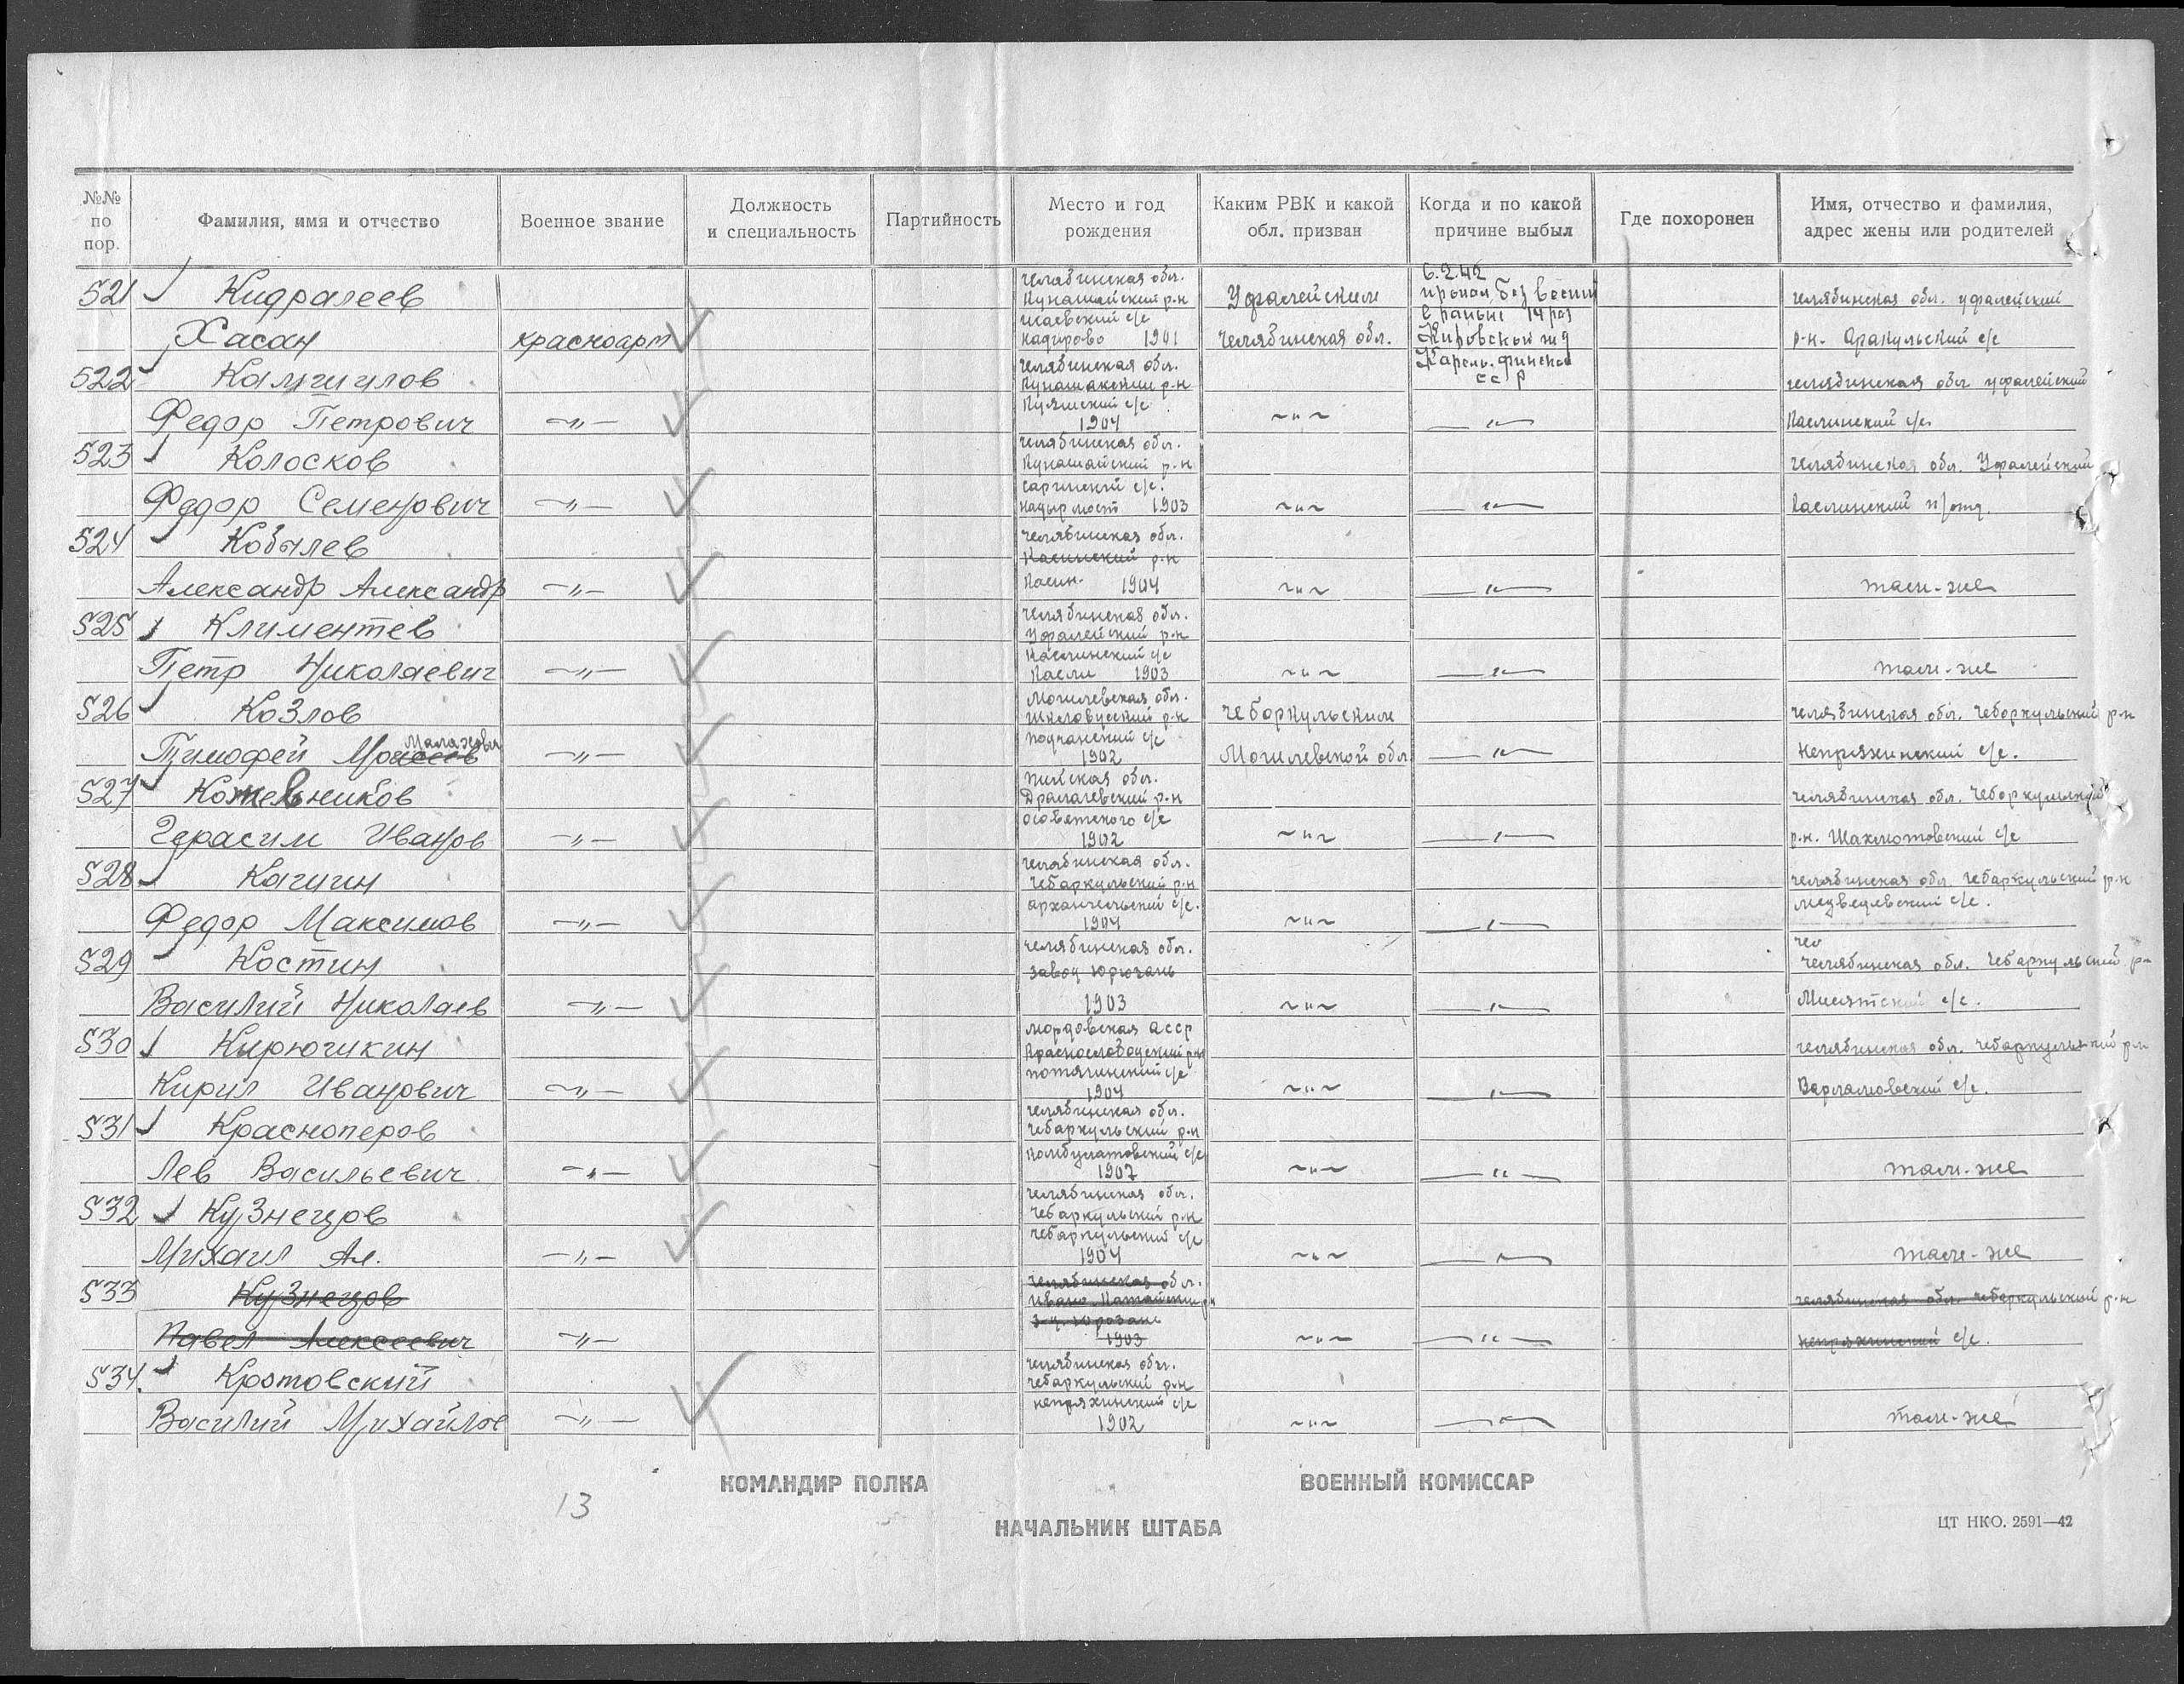 №№ по пор.
Фамилия, имя и отчество
Военное звание
Должность и специальность
Партийность
Место и год рождения
Каким РВК и какой обл. призван
Когда и по какой причине выбыл
Где похоронен
Имя, отчество и фамилия, адрес жены или родителей
521 Кидралеев
Хасан
красноарм
Челябинская обл.
Кунашакский р-н
с/с
Кадирово 1901
Уфалейским
Челябинская обл.
6.2.42
пропал без вести
в районе 14 раз
Кировской жд
Карело-финской
сср
Челябинская обл. Уфалейский
р-н. Аракульский с/с
522
Федор Петрович
—„—
Челябинская обл.
Кунашакский р-н
с/с
1904
~"~
—"—
Челябинская обл Уфалейский
Каслинский с/с
523 Колосков
Федор Семенович
—„—
Челябинская обл.
Кунашакский р-н
Саринский с/с.
1903
~"~
—"—
Челябинская обл. Уфалейский
Каслинский
524 Кобылев
Александр Александр
—„—
Челябинская обл.
р-н
1904
~"~
—"—
там-же
525 Климентев
Петр Николаевич
—„—
Челябинская обл.
Уфалейский р-н
Каслинский с/с
Касли 1903
~"~
—"—
там-же
526 Козлов
Тимофей
—„—
Могилевская обл.
р-н
с/с
1902
Чебаркульским
Могилевской обл
—"—
Челябинская обл. Чебаркульский р-н
Непряхинский с/с.
527 Кожевников
Герасим Иванов
—„—
обл.
р-н
с/с
1902
~"~
—"—
Челябинская обл. Чебаркульский
р.н. Шахматовский с/с
528 Качигин
Федор Максимов
—„—
Челябинская обл.
Чебаркульский р-н
Архангельский с/с.
1904
~"~
—"—
Челябинская обл. Чебаркульский р-н
Медведевский с/с.
529 Костин
Василий Николаев
—„—
Челябинская обл.
завод Юрюзань
1903
~"~
—"—
чел
Челябинская обл. Чебаркульский р-н
с/с.
530 Кирючикин
Кирил Иванович
—„—
Мордовская АССР
Краснослободский р-н
с/с
1904
~"~
—"—
Челябинская обл. Чебаркульский р-н
Варламовский с/с.
531 Красноперов
Лев Васильевич
—„—
Челябинская обл.
Чебаркульский р-н
Камбулатовский с/с
1907
~"~
—"—
там-же
532 Кузнецов
Михаил Ал.
—„—
Челябинская обл.
Чебаркульский р-н
Чебаркульский с/с
1904
~"~
—"—
там-же
533 Кузнецов
Павел Алексеевич
—„—
Челябинская обл.
1903
~"~
—"—
Челябинская обл. Чебаркульский р-н
Непряхинский с/с.
534. Кротовский
Василий Михайлов
—„—
Челябинская обл.
Чебаркульский р-н
Непряхинский с/с
1902
~"~
—"—
там-же
КОМАНДИР ПОЛКА
ВОЕННЫЙ КОМИССАР
13
НАЧАЛЬНИК ШТАБА
ЦТ НКО. 2591—42